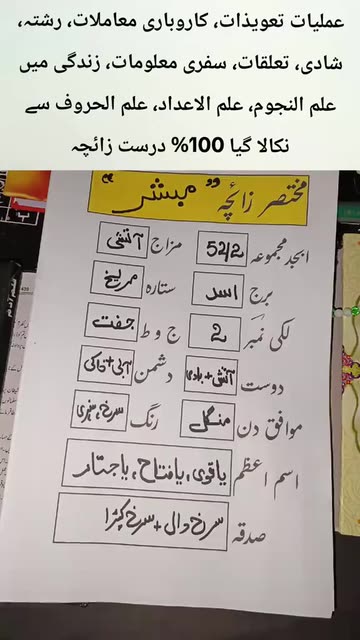 عملیات تعویذات، کاروباری معاملات، رشتہ،
شادی، تعلقات، سفری معلومات، زندگی میں
علم النجوم، علم الاعداد، علم الحروف سے
نکالا گیا 100% درست زائچہ
مختصر زائچہ "مبشر"
ابجد مجموعہ 542/2 مزاج آتشی
برج اسد ستارہ مریخ
لکی نمبر 2 ج و ط جفت
دوست آتش+بادی دشمن آبی+خاکی
موافق دن منگل رنگ سرخ،
اسم اعظم یاقوی، یافتاح، یاجبار
صدقہ سرخ دال+سرخ کپڑا